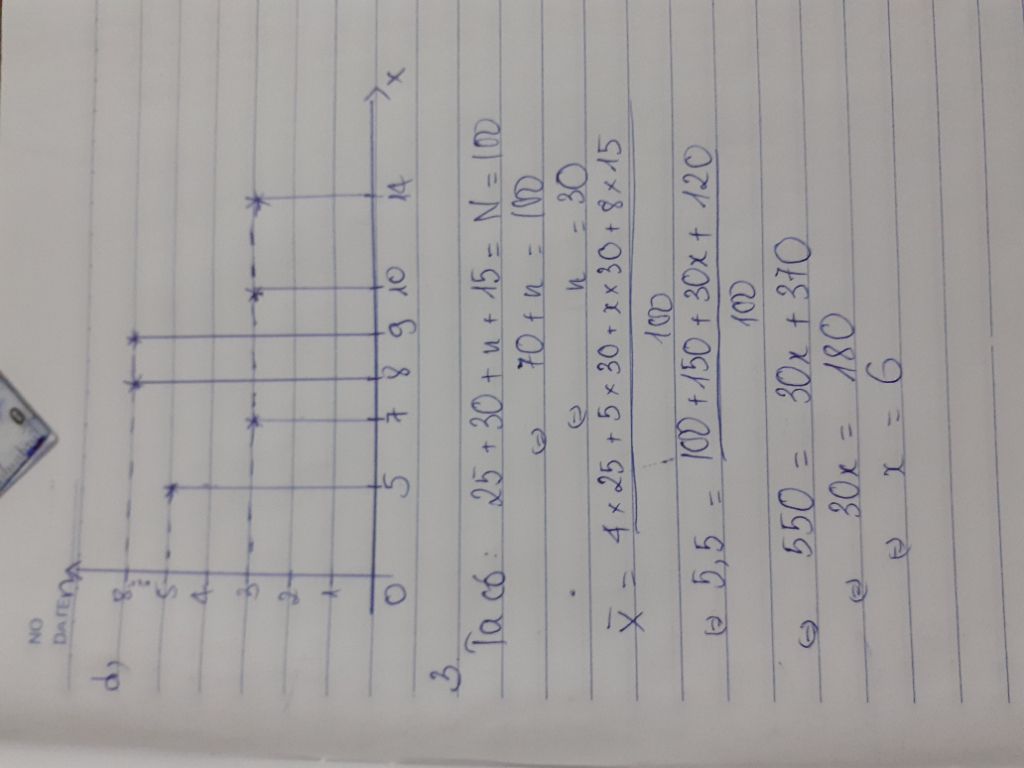 NO
DATE
d)
n
8
5
4
3
2
1
0 5 7 8 9 10 14 x
3
Ta có: 25 + 30 + n + 15 = N = 100
⇔ 70 + n = 100
⇔ n = 30
X̄ = (4 × 25 + 5 × 30 + x × 30 + 8 × 15) / 100
⇔ 5,5 = (100 + 150 + 30x + 120) / 100
⇔ 550 = 30x + 370
⇔ 30x = 180
⇔ x = 6